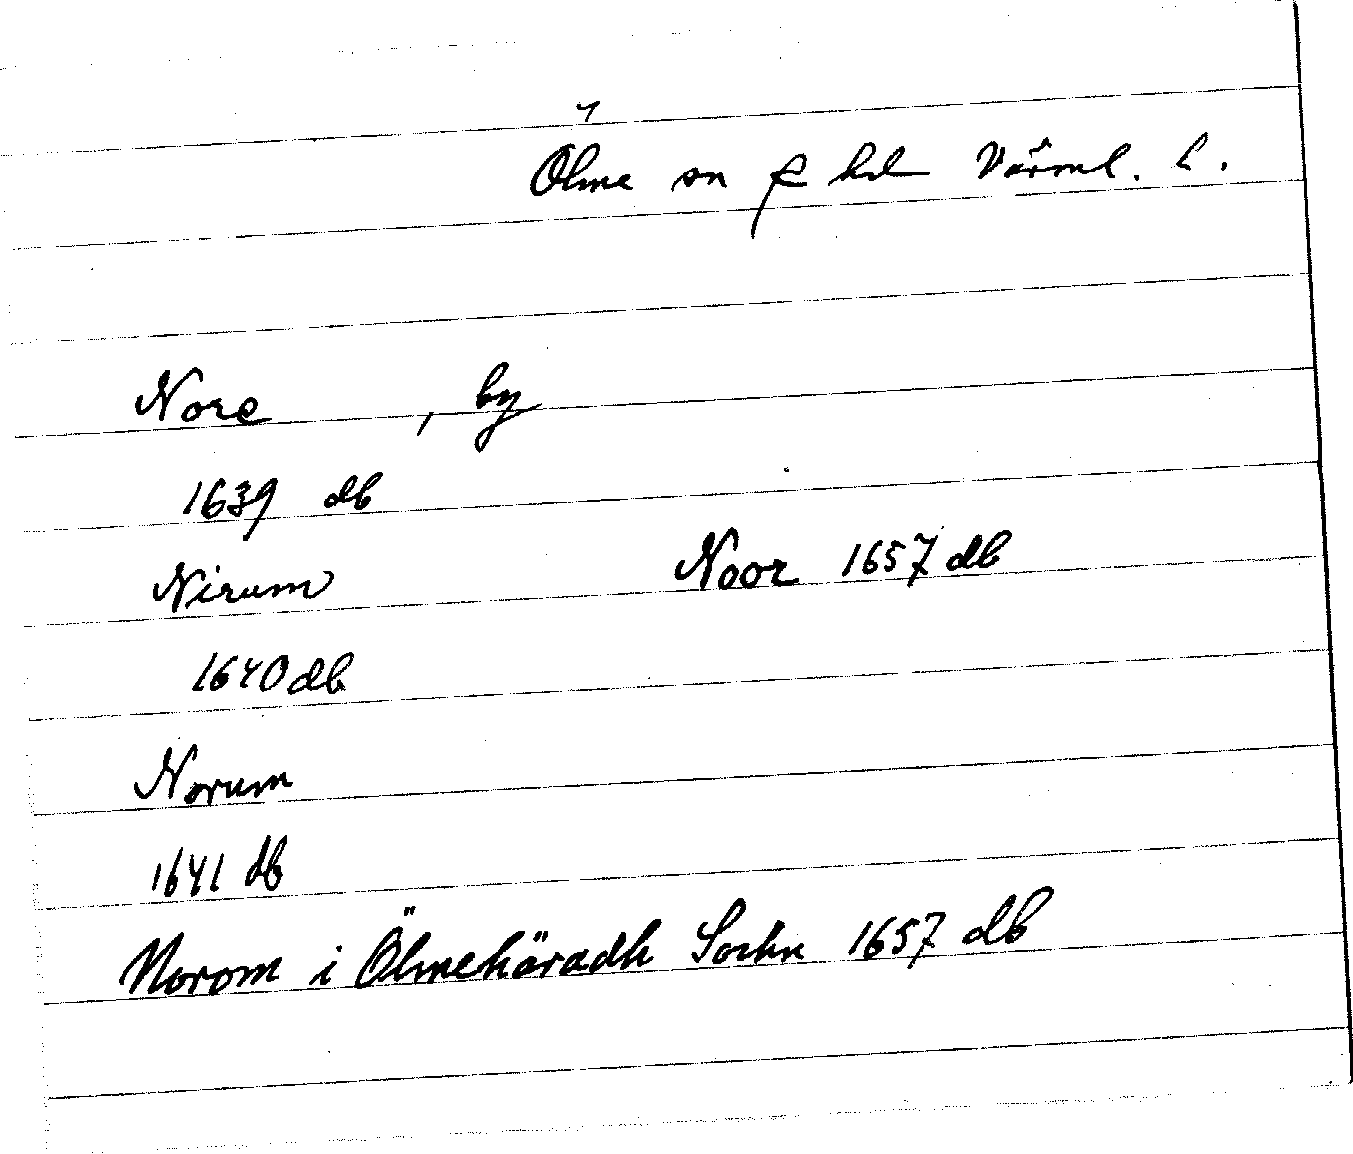 Ölme sn o hd Värml. l.
Nore , by
1639 db
Nirum Noor 1657 db
1640 db
Norum
1641 db
Norom i Ölmehäradh Sochn 1657 db